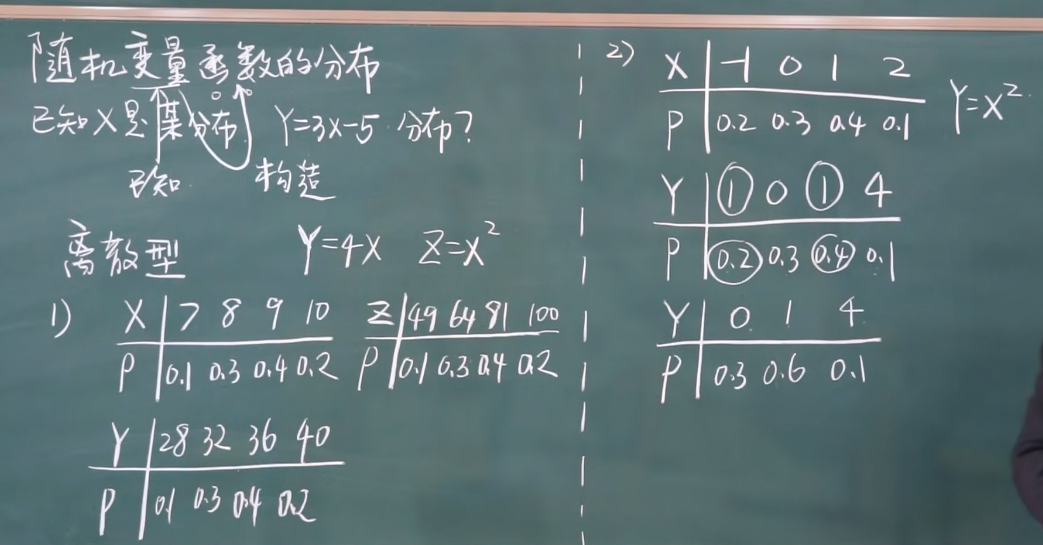 随机变量函数的分布
已知X是某分布 Y=3X-5 分布?
已知 构造
离散型 Y=4X Z=X²
1) X 7 8 9 10 Z 49 64 81 100
P 0.1 0.3 0.4 0.2 P 0.1 0.3 0.4 0.2
Y 28 32 36 40
P 0.1 0.3 0.4 0.2
2) X -1 0 1 2
P 0.2 0.3 0.4 0.1 Y=X²
Y 1 0 1 4
P 0.2 0.3 0.4 0.1
Y 0 1 4
P 0.3 0.6 0.1